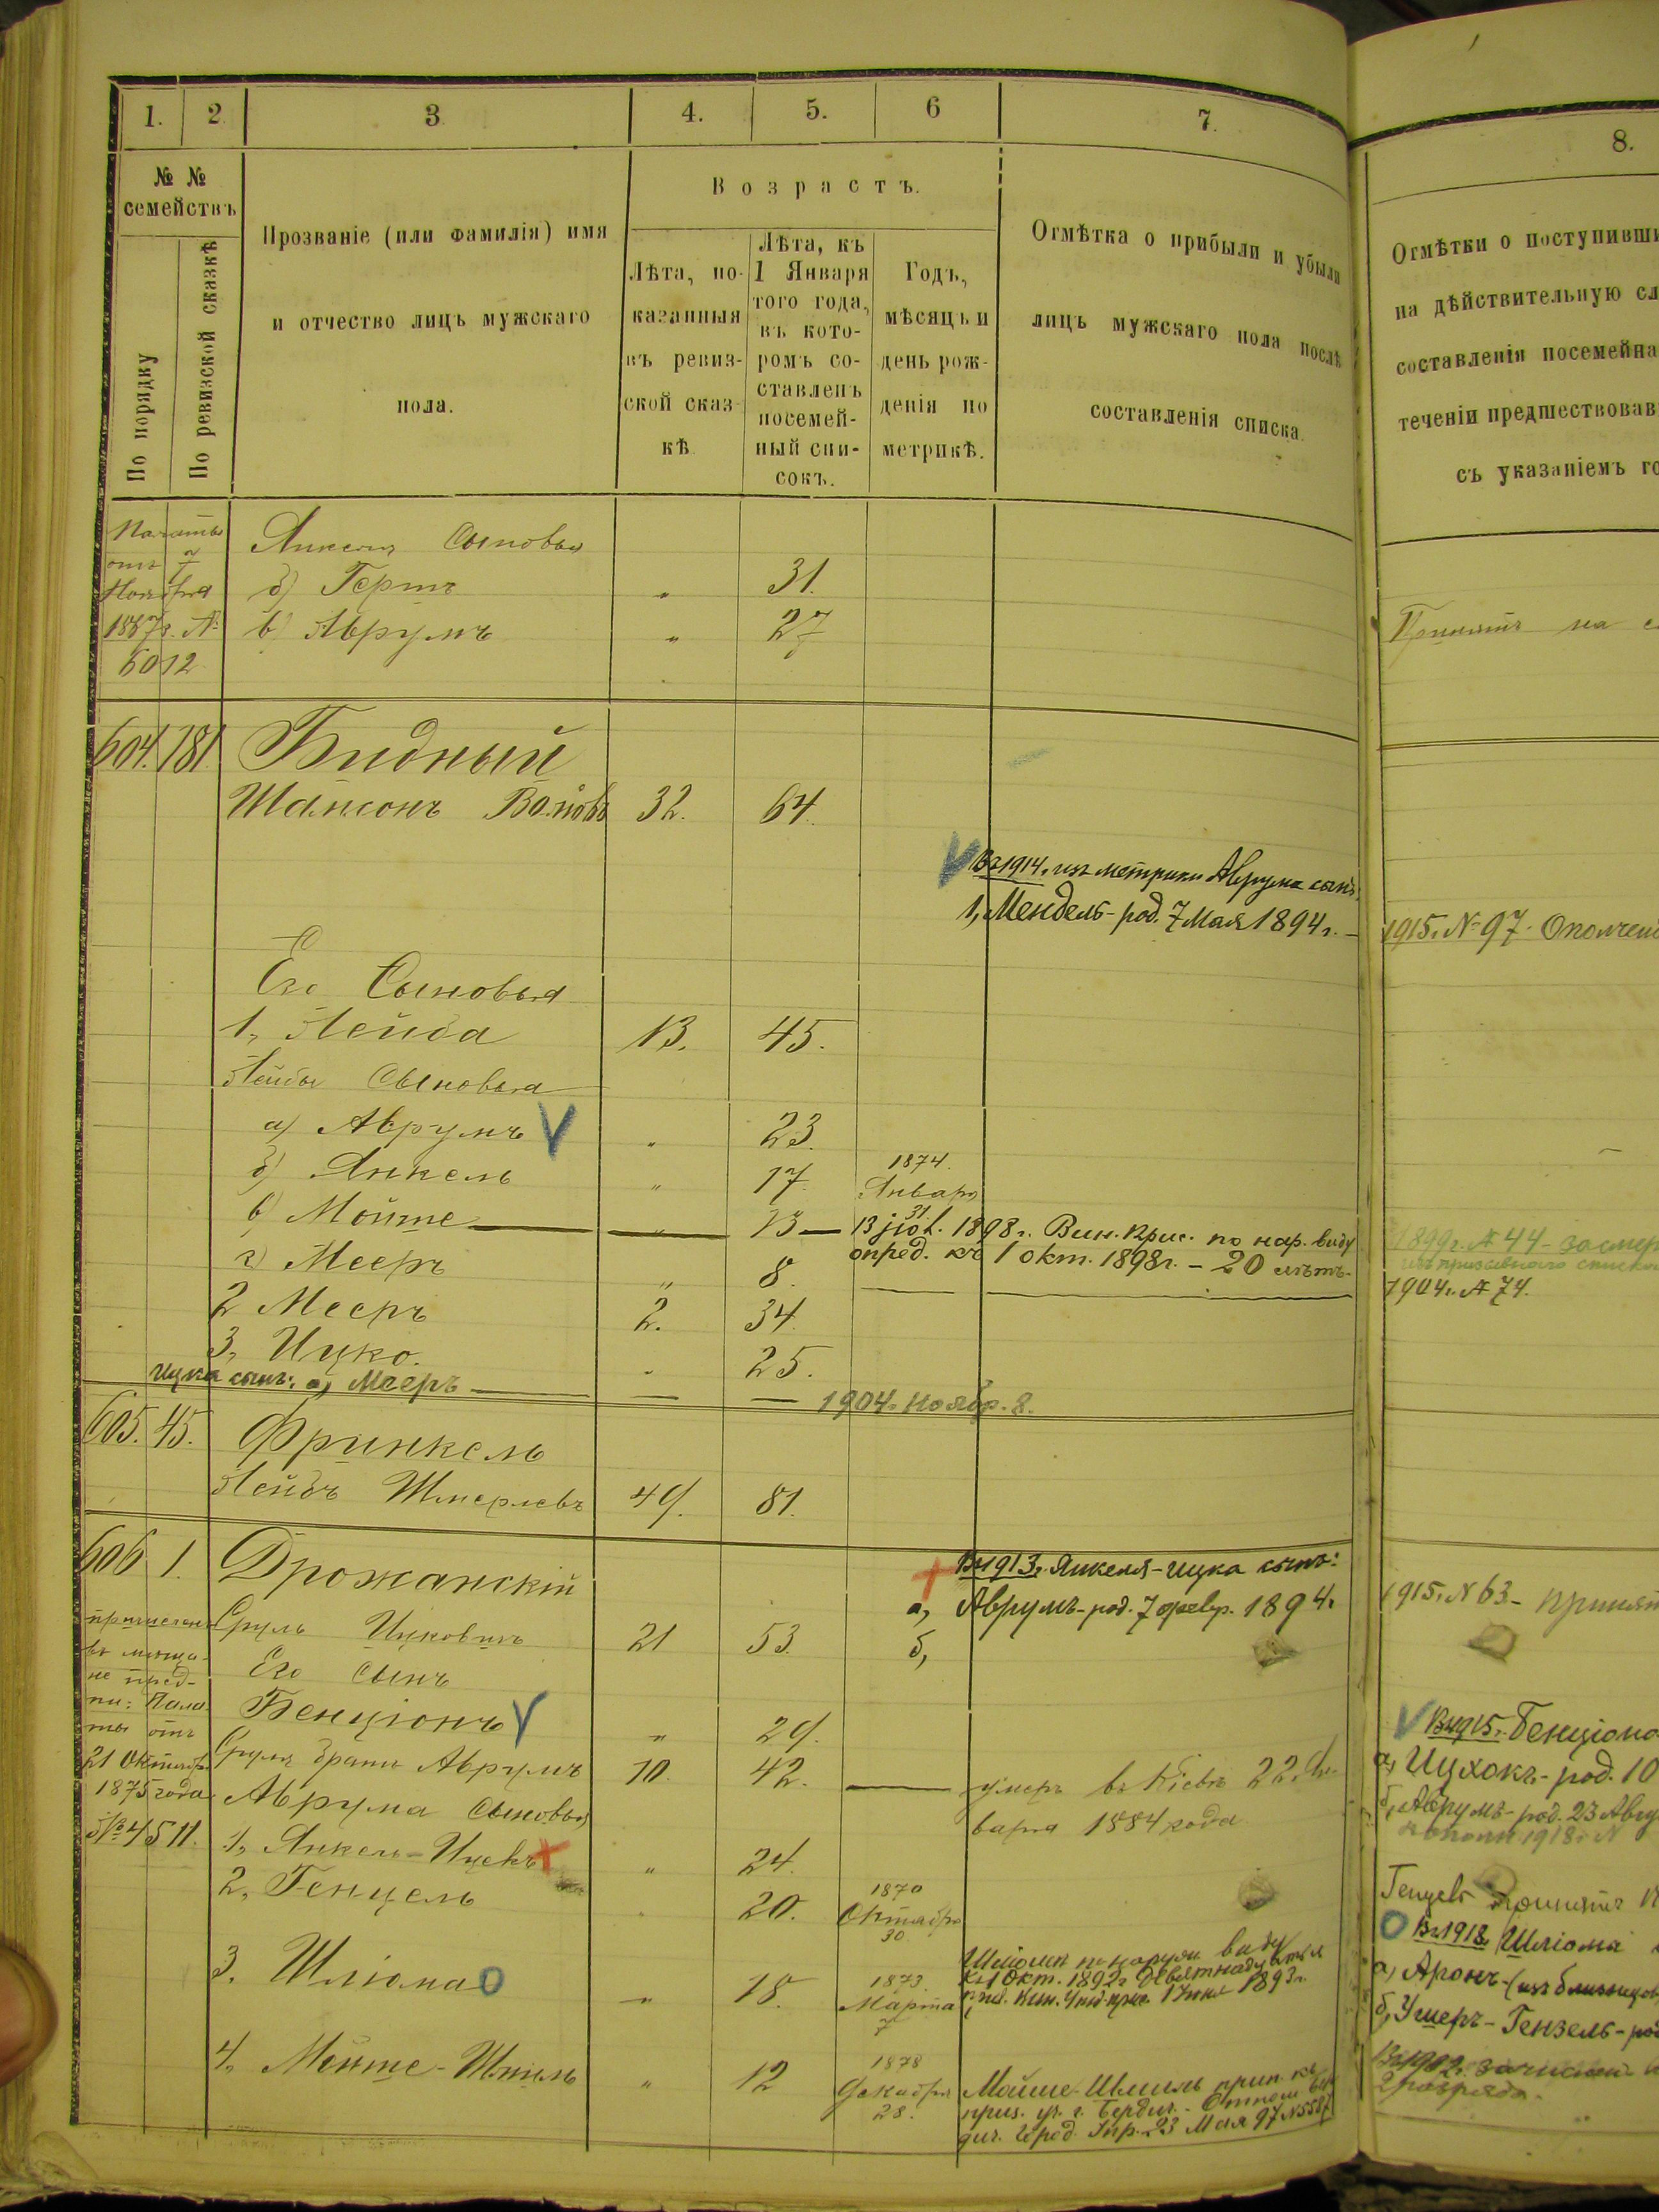 1. 2. 3 4. 5. 6 7. 8.
№ № семействъ
По порядку
По ревизской сказкѣ
Прозваніе (или фамилія) имя
и отчество лицъ мужскаго
пола.
Возрастъ.
Лѣта, по-
казанныя
въ ревиз-
ской сказ-
кѣ.
Лѣта, къ
1 Января
того года,
въ кото-
ромъ со-
ставленъ
посемей-
ный спи-
сокъ.
Годъ,
мѣсяцъ и
день рож-
денія по
метрикѣ.
Отмѣтка о прибыли и убыли
лицъ мужскаго пола послѣ
составленія списка.
Отмѣтки о поступивши
на дѣйствительную сл
составленія посемейна
теченіи предшествовав
съ указаніемъ го
Палаты
отъ 7
Ноября
1887г. №
6012
Янкеля Сыновья
б) Гершъ " 31.
в) Аврумъ " 27
Принятъ на с
604. 181 Бидный
Шамсонъ Волковъ 32. 64.
Въ 1914г. изъ метрики Аврума сынъ:
1, Мендель - род. 7 Мая 1894 г. —
1915г. № 97. Ополчен
Его Сыновья
1, Лейба 13. 45.
Лейбы Сыновья
а) Аврумъ V " 23.
б) Янкель " 17. 1874. Января 31.
в) Мойше " 13 — 13 1898г. Вин. Прис. по нар. виду
опред. къ 1 окт. 1898г. - 20 лѣтъ.
1899г. № 44 -
г) Мееръ " 8.
1904г. № 74.
2 Мееръ 2. 34.
3, Ицко. " 25.
Ицка сынъ: а, Мееръ — — — 1904. ноябр. 8.
605. 45. Фринкель
Лейбъ Шмерлевъ 49. 81.
606 1. Дрожанскій
Въ 1913г. Янкеля-Ицка сынъ:
а, Аврумъ - род. 7 февр. 1894.
б,
1915г. № 63 - принят
причисленъ
въ мѣща-
не пред-
пи: Пала
ты отъ
21 Октября
1875 года
№ 4511.
Сруль Ицковичъ 21 53.
Его Сынъ
Бенціонъ V " 29.
V Въ 1915г. Бенціона
а, Ицхокъ - род. 10
б, Аврумъ - род. 23 Авгу
1918г. №
Сруля братъ Аврумъ 10. 42. — умеръ въ Кіевѣ 22 Ян-
варя 1884 года
Аврума Сыновья
1, Янкель-Ицекъ " 24.
2, Генцель " 20. 1870 Октября 30.
принятъ
3. Шліома О " 18. 1873. Марта 7
по наружн виду
къ 1 Окт. 1892г
1893г.
О Въ 1918г. Шліома
а, Аронъ - (изъ близнецов
б, Ушеръ - Гензель - род
4, Мойше-Шмиль " 12 1878 Декабря 28.
Мойше-Шмиль прип. къ
приз. уч. г. Бердич. - Отнош Бер
дич. Город. Упр. 23 Мая 97 № 5587
Въ 1902г. зачисленъ
2 разряда.